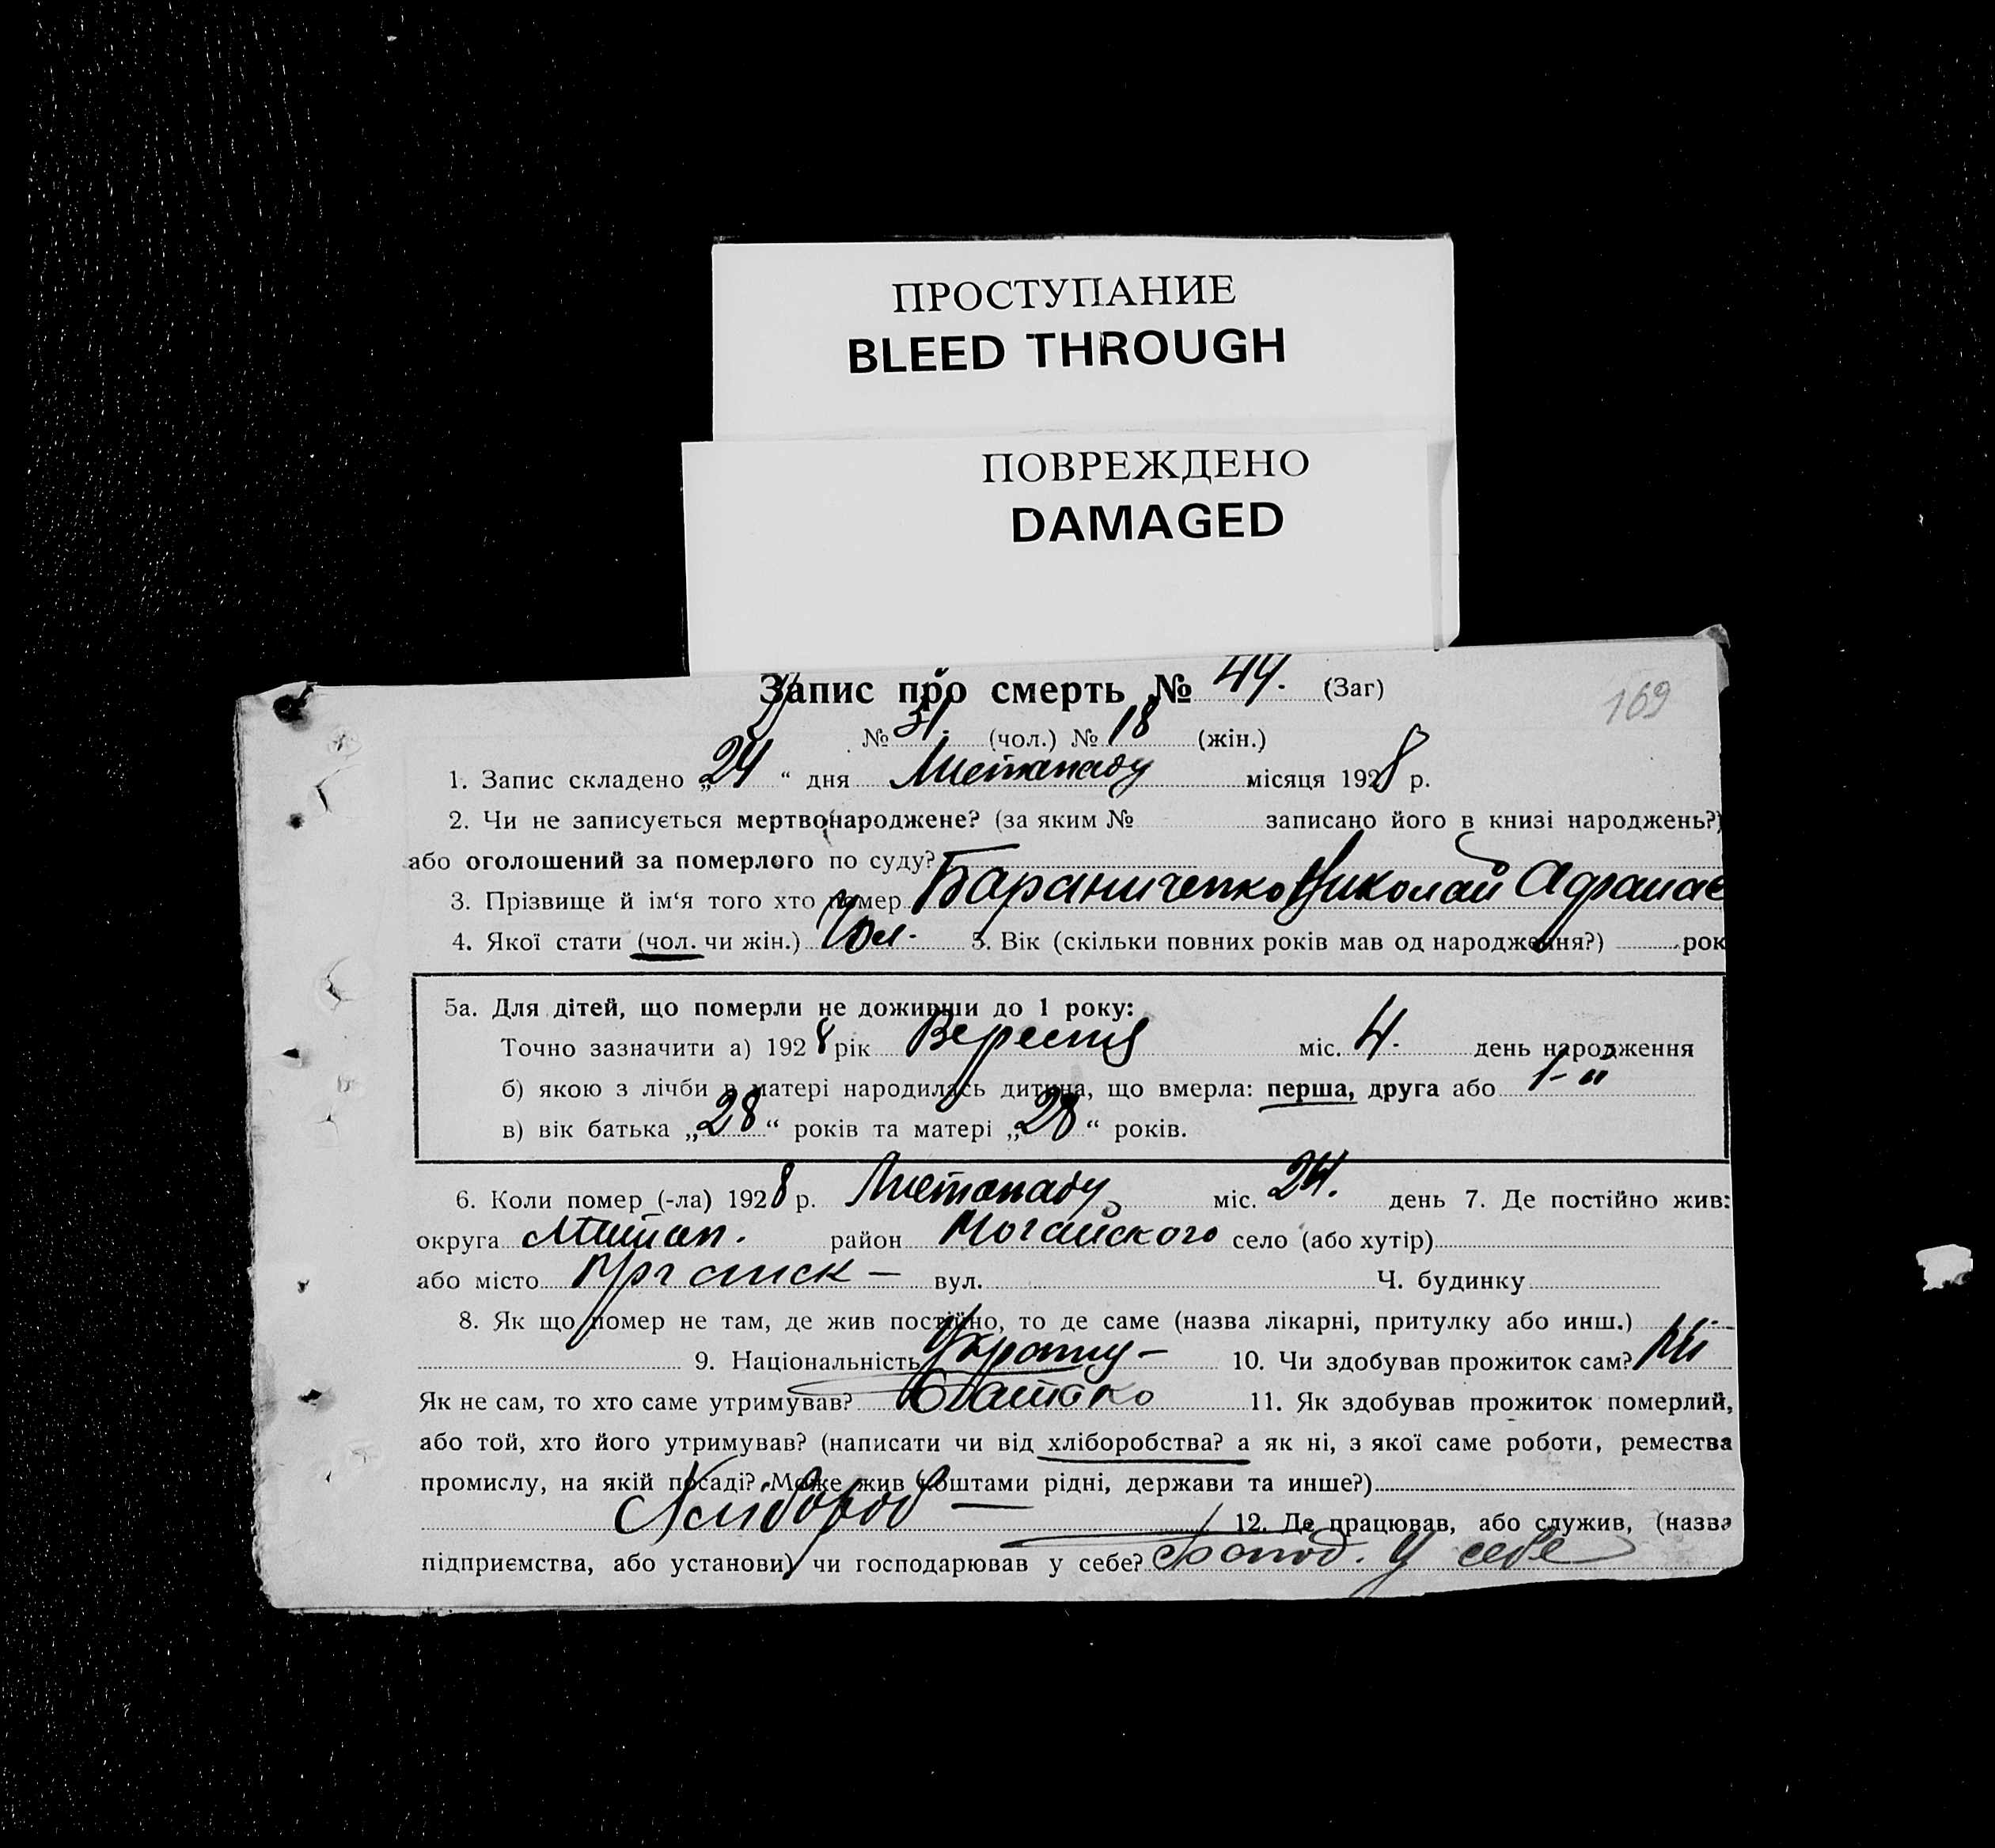 ПРОСТУПАНИЕ
BLEED THROUGH
ПОВРЕЖДЕНО
DAMAGED
Запис про смерть № 44. (Заг)
169
№ 31. (чол.) № 18 (жін.)
1. Запис складено „24“ дня Листопаду місяця 1928 р.
2. Чи не записується мертвонароджене? (за яким № записано його в книзі народжень?)
або оголошений за померлого по суду?
3. Прізвище й ім‘я того хто помер Бараниченко Николай
4. Якої стати (чол. чи жін.) Чол. 5. Вік (скільки повних років мав од народження?) рок
5а. Для дітей, що померли не доживши до 1 року:
Точно зазначити а) 1928 рік Вересня міс. 4. день народження
б) якою з лічби в матері народилась дитина, що вмерла: перша, друга або 1-а
в) вік батька „28“ років та матері „28“ років.
6. Коли помер (-ла) 1928 р. Листопаду міс. 24. день 7. Де постійно жив:
округа район Ногайского село (або хутір)
або місто вул. Ч. будинку
8. Як що помер не там, де жив постійно, то де саме (назва лікарні, притулку або инш.)
9. Національність 10. Чи здобував прожиток сам? Ні
Як не сам, то хто саме утримував? Батько 11. Як здобував прожиток померлий,
або той, хто його утримував? (написати чи від хліборобства? а як ні, з якої саме роботи, ремества
промислу, на якій посаді? Може жив коштами рідні, держави та инше?)
Хлібороб —
12. Де працював, або служив, (назва
підприємства, або установи) чи господарював у себе? Господ. у себе